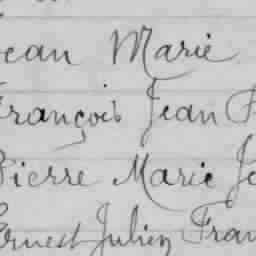 Jean Marie
François Jean
Pierre Marie
Ernest Julien Fran